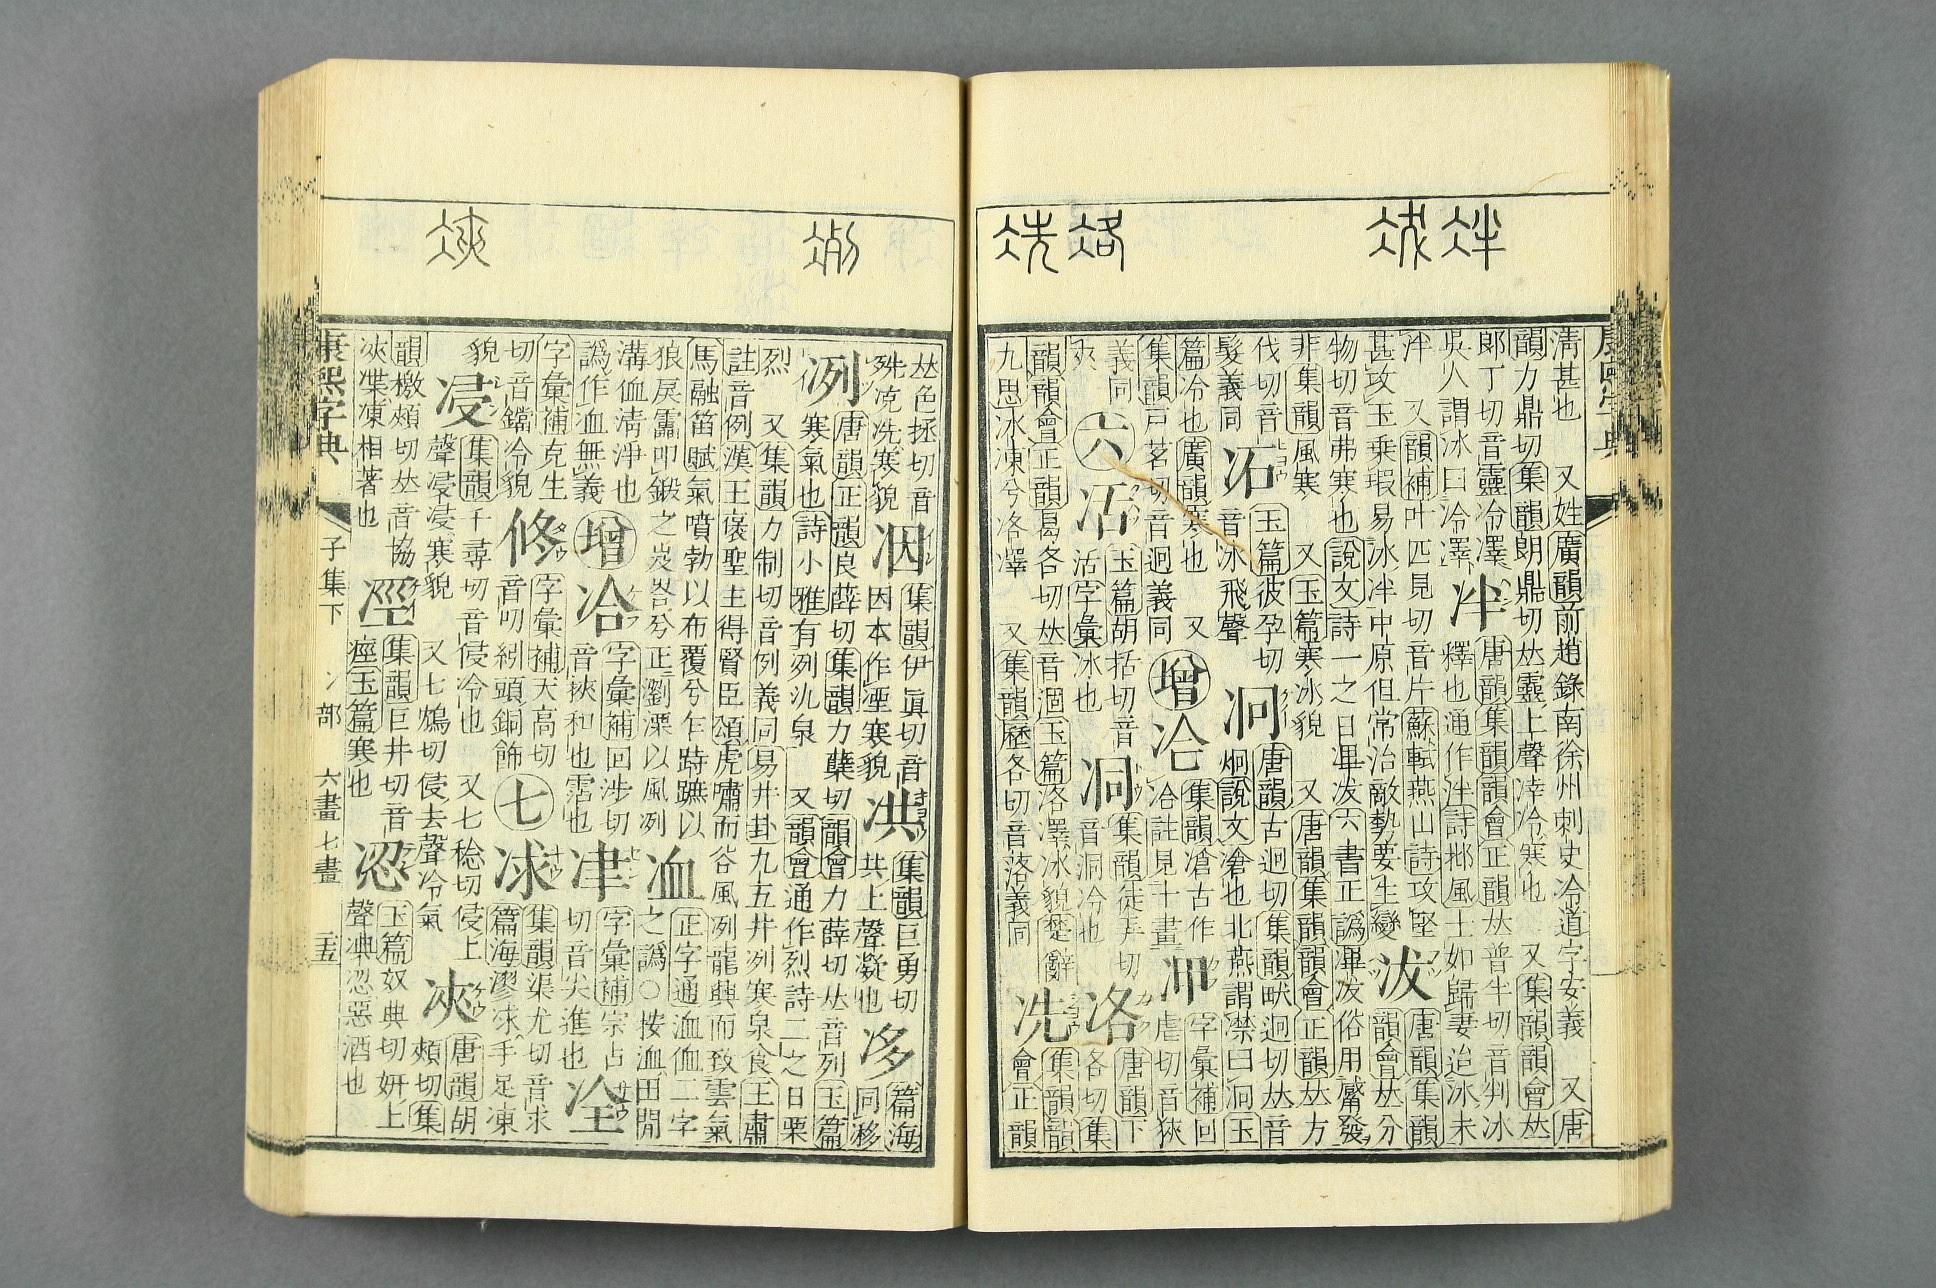 淸甚也　又姓廣韻前趙錄南徐州刺史冷道字安義　又唐
韻力鼎切集韻朗鼎切𠀤靈上聲㓑冷寒也　又集韻韻會𠀤
郞丁切音靈冷澤
吳人謂冰曰冷澤
冸
唐韻集韻韻會正韻𠀤普半切音判冰
釋也通作泮詩邶風士如歸妻迨冰未
泮　又韻補叶匹見切音片蘇軾燕山詩攻堅
甚攻玉乗瑕易冰冸中原但常治敵勢要生變
冹
唐韻集韻
韻會𠀤分
物切音弗寒也說文詩一之日㓖冹六書正譌㓖冹俗用觱發
非集韻風寒　又玉篇寒冰貌　又唐韻集韻韻會正韻𠀤方
伐切音
髮義同
玉篇彼孕切
音冰飛聲
泂
唐韻古迥切集韻畎迥切𠀤音
炯說文滄也北燕謂凚曰泂玉
篇冷也廣韻寒也　又
集韻戸茗切音迥義同
增
冾
集韻滄古作
冾註見十畫
字彙補回
虐切音狹
義同
六
活
玉篇胡括切音
活字彙冰也
洞
集韻徒弄切
音洞冷也
洛
唐韻下
各切集
韻韻會正韻曷各切𠀤音涸玉篇洛澤冰貌楚辭
九思冰凍兮洛澤　又集韻歷各切音落義同
冼
集韻韻
會正韻
𠀤色拯切音
殑冼寒貌
洇
集韻伊眞切音
因本作湮寒貌
洪
集韻巨勇切
共上聲凝也
㓼
篇海
同移
冽
唐韻正韻良薛切集韻力櫱切韻會力薛切𠀤音列玉篇
寒氣也詩小雅有冽氿泉　又韻會通作烈詩二之日栗
烈　又集韻力制切音例義同易井卦九五井冽寒泉食王肅
註音例漢王褒聖主得賢臣頌虎嘯而谷風冽龍興而致雲氣
馬融笛賦氣噴勃以布覆兮乍跱蹠以
狼戾雷叩鍛之岌峇兮正瀏溧以風冽
正字通洫洫二字
之譌○按洫田閒
溝洫淸淨也
譌作洫無義
增
冾
字彙補回涉切
音挾和也霑也
津
字彙補宗占
切音尖進也
字彙補克生
切音鏗冷貌
修
字彙補天高切
音叨紛頭銅飾
七
㳹
集韻渠尤切音求
篇海漻㳹手足凍
貌
浸
集韻千尋切音侵冷也　又七稔切侵上
聲浸浸寒貌　又七鴆切侵去聲冷氣
浹
唐韻胡
頰切集
韻檄頰切𠀤音協
浹渫凍相著也
涇
集韻巨井切音
痙玉篇寒也
涊
玉篇奴典切姸上
聲㓁涊惡酒也
康熙字典
子集下　冫部　六畫七畫